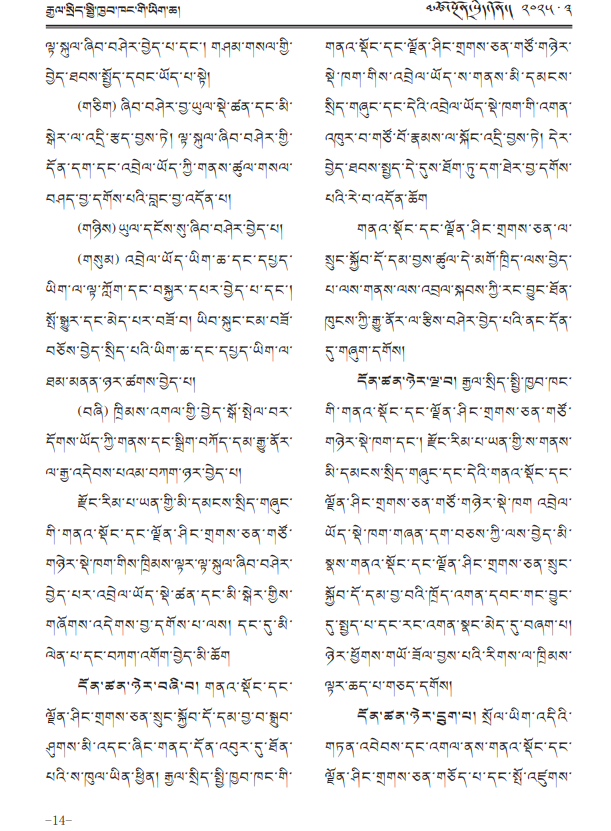 རྒྱལ་སྲིད་སྤྱི་ཁྱབ་ཁང་གི་ཡིག་ཆ།
༢༠༢༥ · ༣
ལྟ་སྐུལ་ཞིབ་བཤེར་བྱེད་པ་དང་། གཤམ་གསལ་གྱི་
བྱེད་ཐབས་སྤྱོད་དབང་ཡོད་པ་སྟེ།
(གཅིག) ཞིབ་བཤེར་བྱ་ཡུལ་སྡེ་ཚན་དང་མི་
སྒེར་ལ་འདྲི་རྩད་བྱས་ཏེ། ལྟ་སྐུལ་ཞིབ་བཤེར་གྱི་
དོན་དག་དང་འབྲེལ་ཡོད་ཀྱི་གནས་ཚུལ་གསལ་
བཤད་བྱ་དགོས་པའི་བླང་བྱ་འདོན་པ།
(གཉིས) ཡུལ་དངོས་སུ་ཞིབ་བཤེར་བྱེད་པ།
(གསུམ) འབྲེལ་ཡོད་ཡིག་ཆ་དང་དཔྱད་
ཡིག་ལ་ལྟ་ཀློག་དང་བསྐྱར་དཔར་བྱེད་པ་དང་།
སྤོ་སྒྱུར་དང་མེད་པར་བཟོ་བ། ཡིབ་སྐུང་ངམ་བཟོ་
བཅོས་བྱེད་སྲིད་པའི་ཡིག་ཆ་དང་དཔྱད་ཡིག་ལ་
ཐམ་མནན་ཉར་ཚགས་བྱེད་པ།
(བཞི) ཁྲིམས་འགལ་གྱི་བྱེད་སྒོ་སྤེལ་བར་
དོགས་ཡོད་ཀྱི་གནས་དང་སྒྲིག་བཀོད་དམ་རྒྱུ་ནོར་
ལ་རྒྱ་འདེབས་པའམ་བཀག་ཉར་བྱེད་པ།
རྫོང་རིམ་པ་ཡན་གྱི་མི་དམངས་སྲིད་གཞུང་
གི་གནའ་སྡོང་དང་ལྗོན་ཤིང་གྲགས་ཅན་གཙོ་
གཉེར་སྡེ་ཁག་གིས་ཁྲིམས་ལྟར་ལྟ་སྐུལ་ཞིབ་བཤེར་
བྱེད་པར་འབྲེལ་ཡོད་སྡེ་ཚན་དང་མི་སྒེར་གྱིས་
གཞོགས་འདེགས་བྱ་དགོས་པ་ལས། དང་དུ་མི་
ལེན་པ་དང་བཀག་འགོག་བྱེད་མི་ཆོག
དོན་ཚན་ཉེར་བཞི་བ། གནའ་སྡོང་དང་
ལྗོན་ཤིང་གྲགས་ཅན་སྲུང་སྐྱོབ་དོ་དམ་བྱ་བ་སྒྲུབ་
ཤུགས་མི་འདང་ཞིང་གནད་དོན་འབུར་དུ་ཐོན་
པའི་ས་ཁུལ་ཡིན་ཕྱིན། རྒྱལ་སྲིད་སྤྱི་ཁྱབ་ཁང་གི་
གནའ་སྡོང་དང་ལྗོན་ཤིང་གྲགས་ཅན་གཙོ་གཉེར་
སྡེ་ཁག་གིས་འབྲེལ་ཡོད་ས་གནས་མི་དམངས་
སྲིད་གཞུང་དང་དེའི་འབྲེལ་ཡོད་སྡེ་ཁག་གི་འགན་
འཁུར་བ་གཙོ་བོ་རྣམས་ལ་སྐོང་འདྲི་བྱས་ཏེ། དེར་
བྱེད་ཐབས་སྤྱད་དེ་དུས་ཐོག་ཏུ་དག་ཐེར་བྱ་དགོས་
པའི་རེ་བ་འདོན་ཆོག
གནའ་སྡོང་དང་ལྗོན་ཤིང་གྲགས་ཅན་ལ་
སྲུང་སྐྱོབ་དོ་དམ་བྱས་ཚུལ་དེ་མགོ་ཁྲིད་ལས་བྱེད་
པ་ལས་གནས་ལས་འབྲལ་སྐབས་ཀྱི་རང་བྱུང་ཐོན་
ཁུངས་ཀྱི་རྒྱུ་ནོར་ལ་རྩིས་བཤེར་བྱེད་པའི་ནང་དོན་
དུ་གཞུག་དགོས།
དོན་ཚན་ཉེར་ལྔ་བ། རྒྱལ་སྲིད་སྤྱི་ཁྱབ་ཁང་
གི་གནའ་སྡོང་དང་ལྗོན་ཤིང་གྲགས་ཅན་གཙོ་
གཉེར་སྡེ་ཁག་དང་། རྫོང་རིམ་པ་ཡན་གྱི་ས་གནས་
མི་དམངས་སྲིད་གཞུང་དང་དེའི་གནའ་སྡོང་དང་
ལྗོན་ཤིང་གྲགས་ཅན་གཙོ་གཉེར་སྡེ་ཁག འབྲེལ་
ཡོད་སྡེ་ཁག་གཞན་དག་བཅས་ཀྱི་ལས་བྱེད་མི་
སྣས་གནའ་སྡོང་དང་ལྗོན་ཤིང་གྲགས་ཅན་སྲུང་
སྐྱོབ་དོ་དམ་བྱ་བའི་ཁྲོད་འགན་དབང་གང་བྱུང་
དུ་སྤྱད་པ་དང་རང་འགན་སྣང་མེད་དུ་བཞག་པ།
ཉེར་ཕྱོགས་གཡོ་ཟོལ་བྱས་པའི་རིགས་ལ་ཁྲིམས་
ལྟར་ཆད་པ་གཅད་དགོས།
དོན་ཚན་ཉེར་དྲུག་པ། སྲོལ་ཡིག་འདིའི་
གཏན་འབེབས་དང་འགལ་ནས་གནའ་སྡོང་དང་
ལྗོན་ཤིང་གྲགས་ཅན་གཅོད་པ་དང་སྤོ་འཛུགས་
–14–